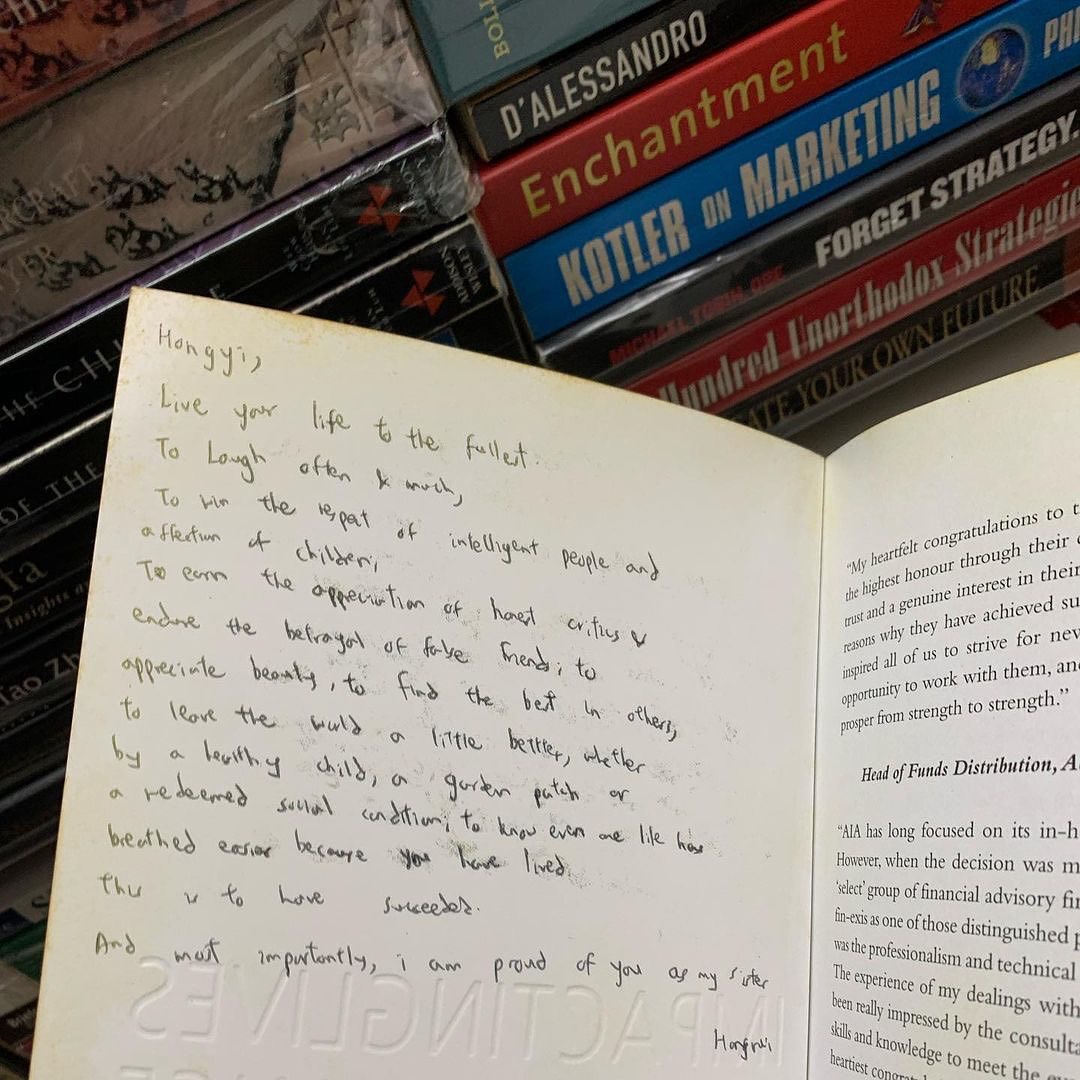 BOLI
D'ALESSANDRO
Enchantment
KOTLER ON MARKETING
PHI
FORGET STRATEGY.
Hundred Unorthodox Strategie
ATE YOUR OWN FUTURE
ADDISON
WESLEY
OF THE
Insights
Tao Zh
Hongyi,
Live your life to the fullest.
To Laugh often & much,
To win the respat of intelligent people and
affection of children;
To earn the appreciation of honest critics &
endure the betrayal of false friends; to
appreciate beauty, to find the best in others,
to leave the world a little better, whether
by a healthy child, a garden patch or
a redeemed social condition; to know even one life has
breathed easier because you have lived.
This is to have succeeded.
And most importantly, i am proud of you as my sister
IMPACTINGLIVES
"My heartfelt congratulations to t
the highest honour through their
trust and a genuine interest in their
reasons why they have achieved su
inspired all of us to strive for new
opportunity to work with them, and
prosper from strength to strength."
Head of Funds Distribution, A
"AIA has long focused on its in-h
However, when the decision was m
'select' group of financial advisory fir
fin-exis as one of those distinguished p
was the professionalism and technical
The experience of my dealings with
been really impressed by the consulta
skills and knowledge to meet the
heartiest congrat